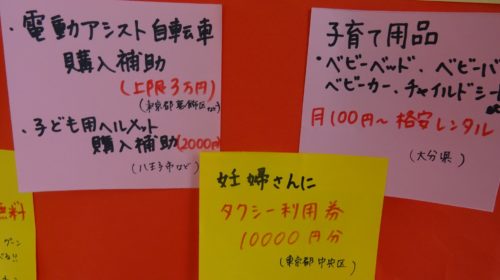 ・電動アシスト自転車
購入補助
(上限3万円)
(東京都葛飾区など)
・子ども用ヘルメット
購入補助(2000円)
(八王子市など)
子育て用品
・ベビーベッド、ベビーバ
ベビーカー、チャイルドシート
月100円〜格安レンタル
(大分県)
妊婦さんに
タクシー利用券
10000円分
(東京都中央区)
無料